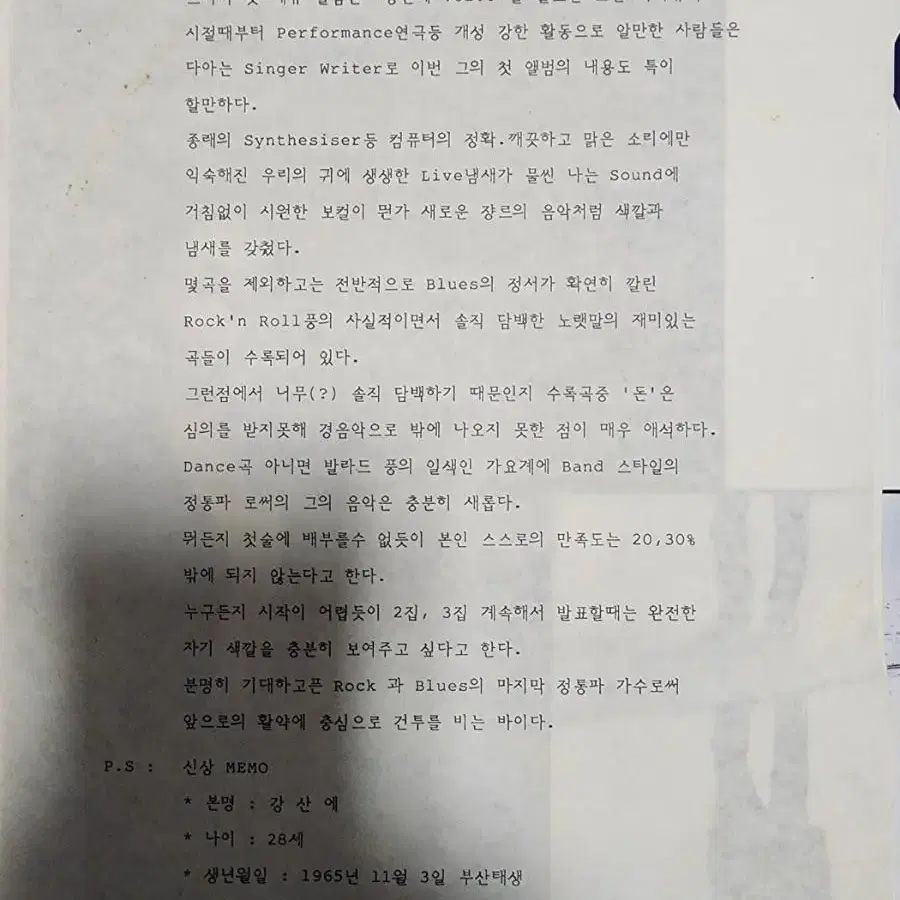 시절때부터 Performance연극등 개성 강한 활동으로 알만한 사람들은
다아는 Singer Writer로 이번 그의 첫 앨범의 내용도 특이
할만하다.
종래의 Synthesiser등 컴퓨터의 정확.깨끗하고 맑은 소리에만
익숙해진 우리의 귀에 생생한 Live냄새가 물씬 나는 Sound에
거침없이 시원한 보컬이 뭔가 새로운 쟝르의 음악처럼 색깔과
냄새를 갖췄다.
몇곡을 제외하고는 전반적으로 Blues의 정서가 확연히 깔린
Rock'n Roll풍의 사실적이면서 솔직 담백한 노랫말의 재미있는
곡들이 수록되어 있다.
그런점에서 너무(?) 솔직 담백하기 때문인지 수록곡중 '돈'은
심의를 받지못해 경음악으로 밖에 나오지 못한 점이 매우 애석하다.
Dance곡 아니면 발라드 풍의 일색인 가요계에 Band 스타일의
정통파 로써의 그의 음악은 충분히 새롭다.
뭐든지 첫술에 배부를수 없듯이 본인 스스로의 만족도는 20,30%
밖에 되지 않는다고 한다.
누구든지 시작이 어렵듯이 2집, 3집 계속해서 발표할때는 완전한
자기 색깔을 충분히 보여주고 싶다고 한다.
분명히 기대하고픈 Rock 과 Blues의 마지막 정통파 가수로써
앞으로의 활약에 충심으로 건투를 비는 바이다.
P.S : 신상 MEMO
* 본명 : 강 산 에
* 나이 : 28세
* 생년월일 : 1965년 11월 3일 부산태생